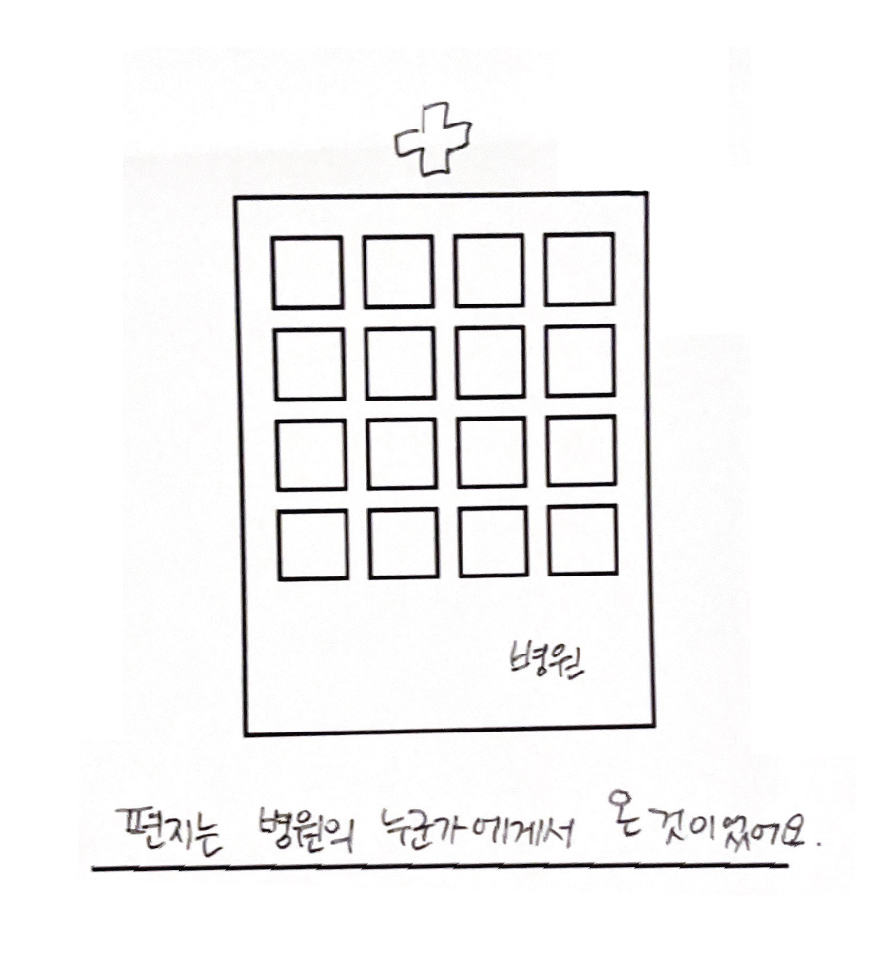 병원
편지는 병원의 누군가에게서 온 것이었어요.